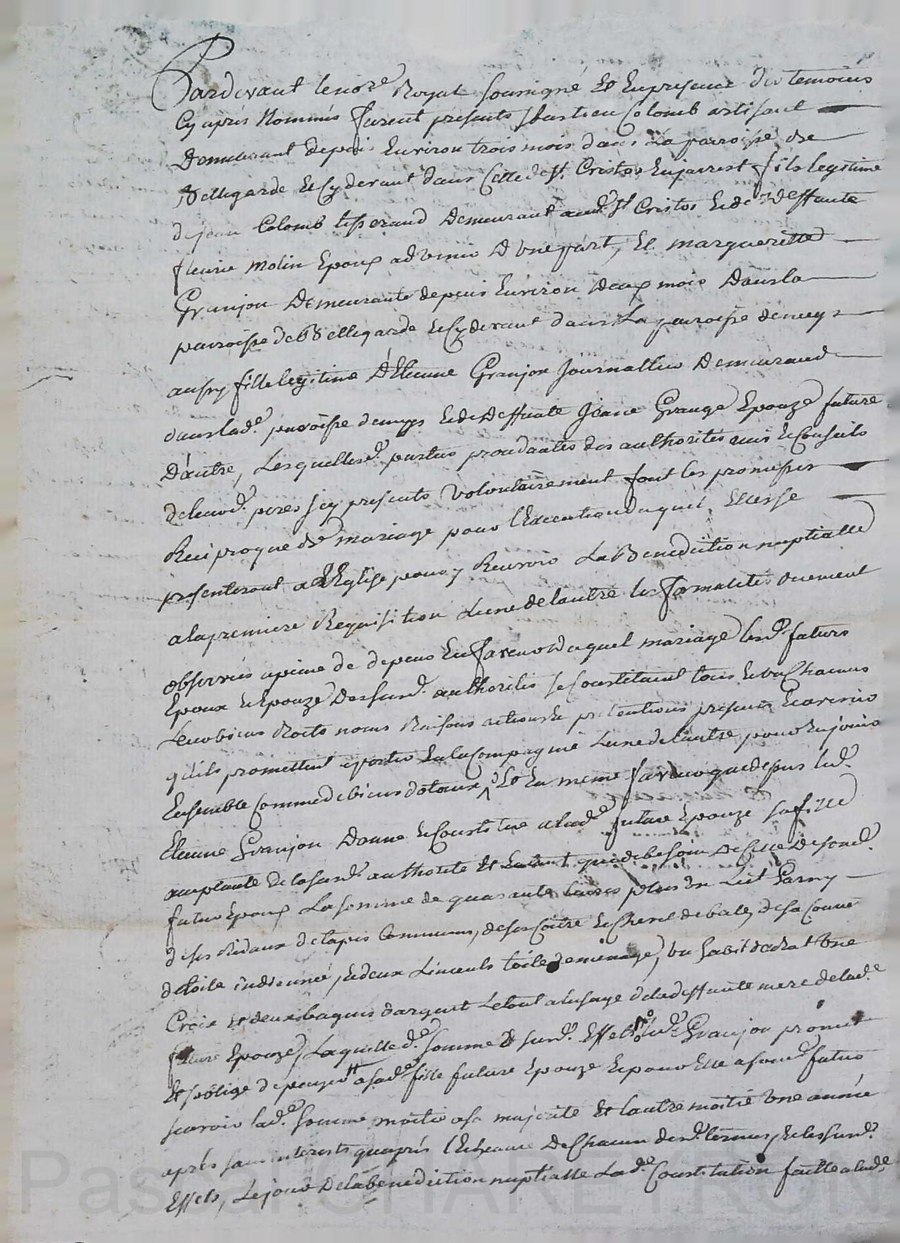 Pardevant le no.re Royal soussigné Et En presence des temoins
Cy apres Nommés furent presents sbastien Colomb artisant
Demeurant depuis Environ trois mois dans la paroisse de
Bellegarde Et Cy devant dans Celle de st Cristos En jarrest fils legitime
de jean Colomb tisserand Demeurant aud. st Cristos Et de Deffunte
fleurie molin Epoux advenir D'Une part, Et margueritte
Granjon Demeurante depuis Environ deux mois Dans la
paroisse de Bellegarde Et Cy devant dans La paroisse de meys
aussy fille legitime D'Etienne Granjon Journallier Demeurand
dans lad.e paroisse de meys Et de Deffunte Jeane Grange Epouze future
D'autre, Lesquelles parties procedantes des authorités avis Et Conseils
de leurd. peres icy presents volontairement font les promesses
Reciproque de mariage pour l'Execution duquel Elles se
presenteront a L'Eglise pour y Recevoir La Benediction nuptialle
a la premiere Requisition L'une de l'autre les formalités
observés a peine de depens En faveur duquel mariage les d. futurs
Epoux Et Epouze Des sud. authorités se Constituent tous Et Un Chacuns
Leurs biens droits noms Raisons actions Et pretentions presents Et avenir
qu'ils promettent aporter En la Compagnie L'une de l'autre pour En jouir
Ensemble Comme de biens dotaux, Et En meme faveur que depuis led.
Etienne Granjon Donne Et Constitue a lad.e future Epouze sa fille
acceptante de la sud. authorité Et Entant que de besoin De Celle De son d.
futur Epoux La somme de quarante Livres plus Un Lit Garny
de ses Rideaux de tapis Communs, de son Coitre Et Chevet de bale, de sa Couverte
de toile indienne, Et deux Linceuls toile de menage, Un habit de drat Une
Croix Et deux bagues d'argent Le tout a l'usage de la deffunte mere de lad.e
future Epouze, Laquelle d.e somme Et sud. Effets led. Granjon promet
Et s'oblige de payer a sad.e fille future Epouze Et pour Elle a son d. futur
scavoir lad.e somme moitié a sa majorité Et l'autre moitié Une année
apres sans interests qu'apres l'Echeance De Chacun des d. termes, Et les sud.
Effets, Le jour De la benediction nuptialle La d.e Constitution faitte a lad.e